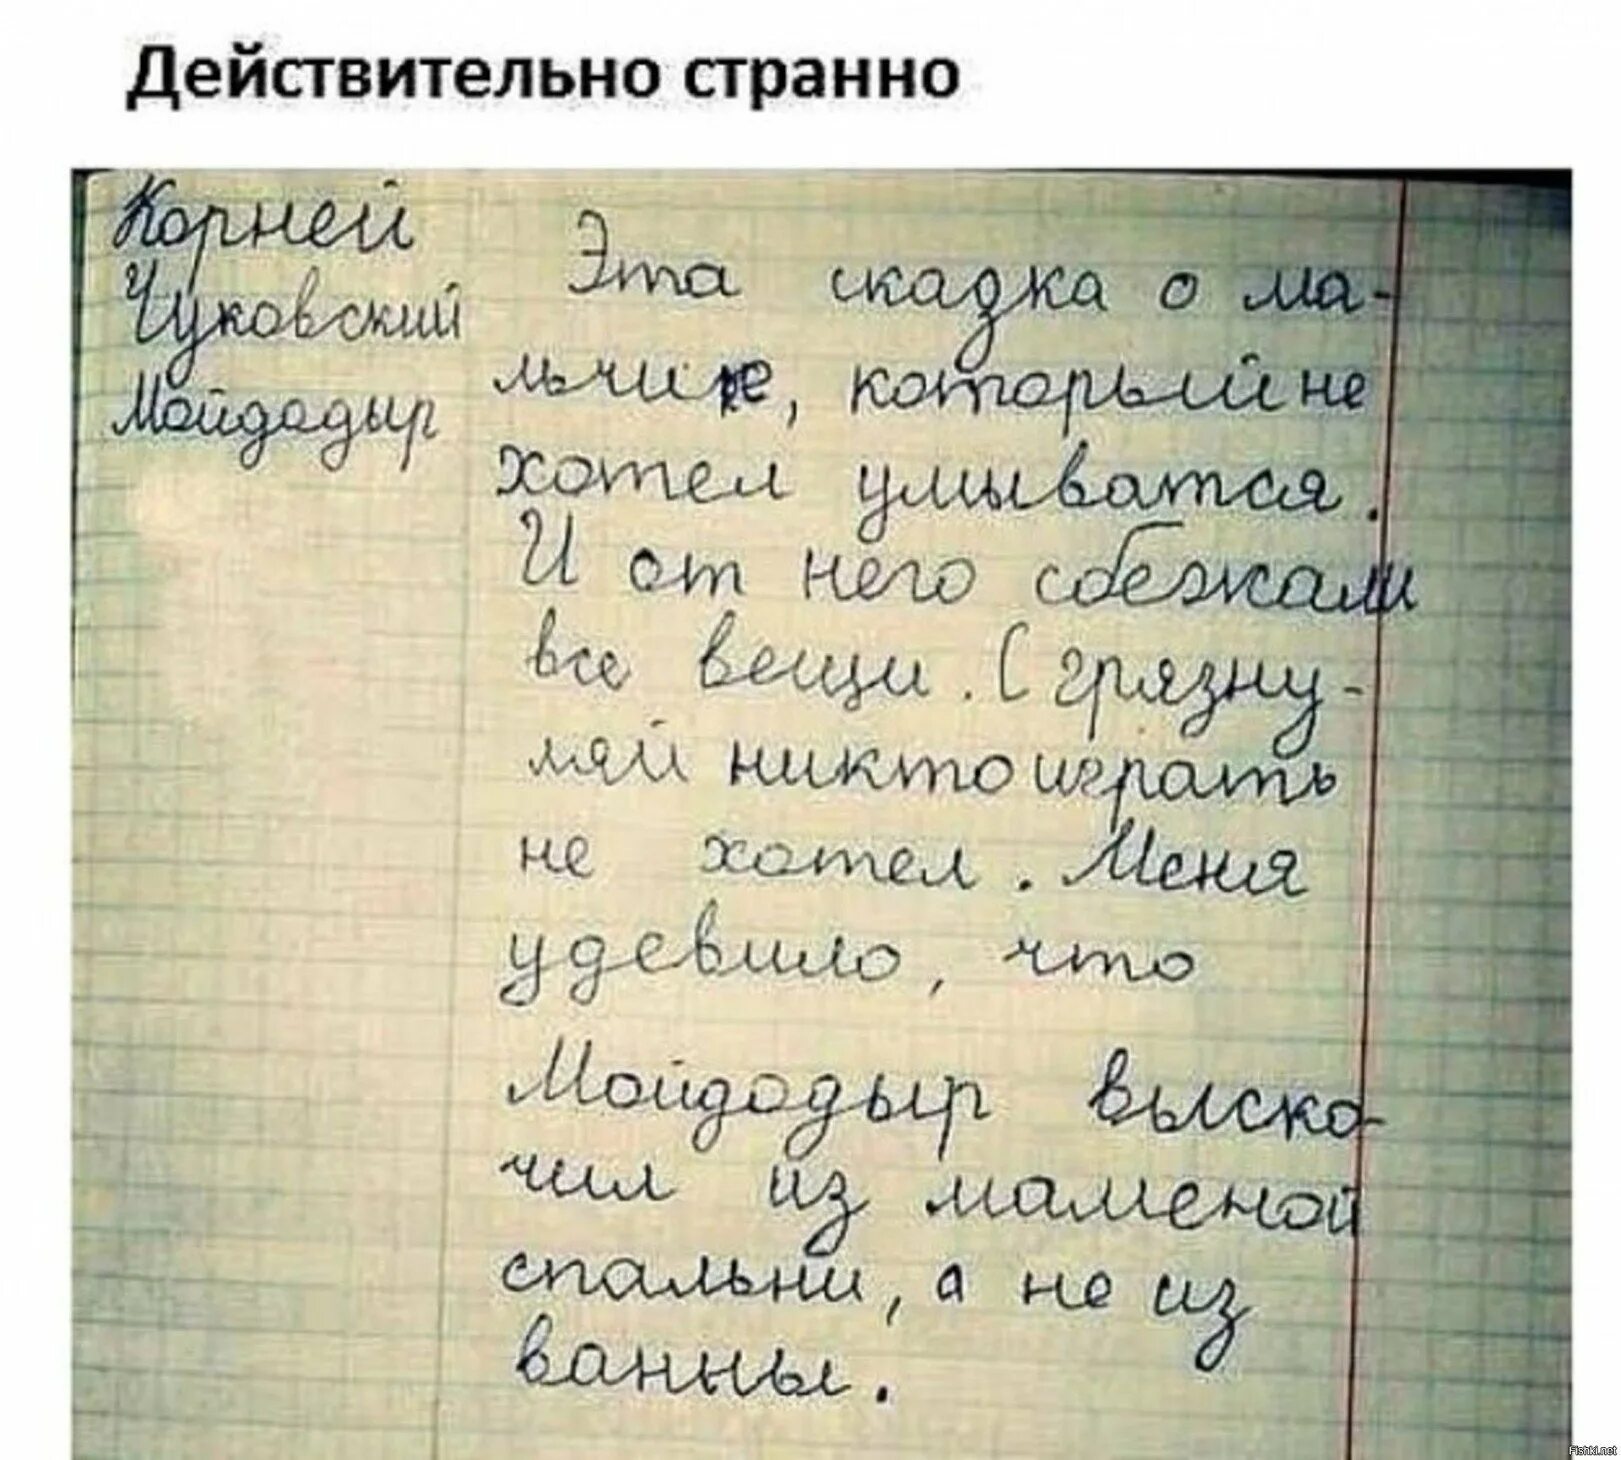 Действительно странно
Корней
Чуковский
Мойдодыр
Эта скадка о ма-
льчике, который не
хотел умыватся.
И от него сбежали
все вещи. С грязну-
лей никто играть
не хотел. Меня
удевило, что
Мойдодыр выско-
чил из маменой
спальни, а не из
ванны.
Fishki.net